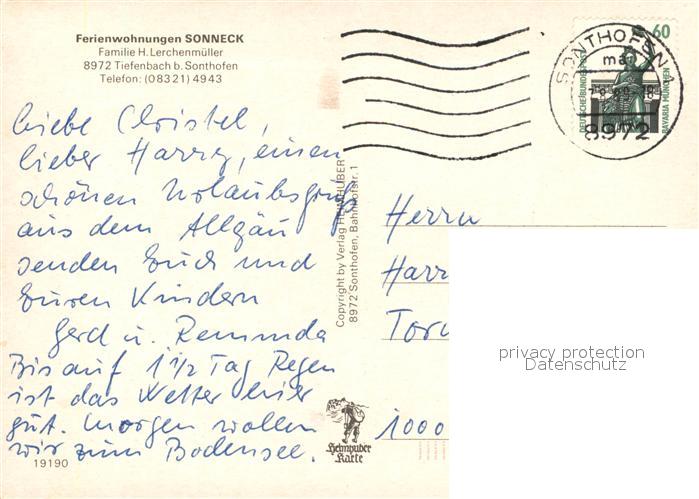 Ferienwohnungen SONNECK
Familie H. Lerchenmüller
8972 Tiefenbach b. Sonthofen
Telefon: (08321) 4943
Liebe Christel,
lieber Harry, einen
schönen Urlaubsgruß
aus dem Allgäu
senden Euch und
Euren Kindern
Gerd u.
Bis auf 1 1/2 Tag Regen
ist das Wetter hier
gut. Morgen wollen
wir zum Bodensee.
19190
Copyright by Verlag HEIMHUBER
8972 Sonthofen, Bahnhofstr. 1
Heimhuber
Karte
SONTHOFEN 1
8972
60
DEUTSCHE BUNDESPOST
BAVARIA MÜNCHEN
Herrn
Harr
1000
privacy protection
Datenschutz